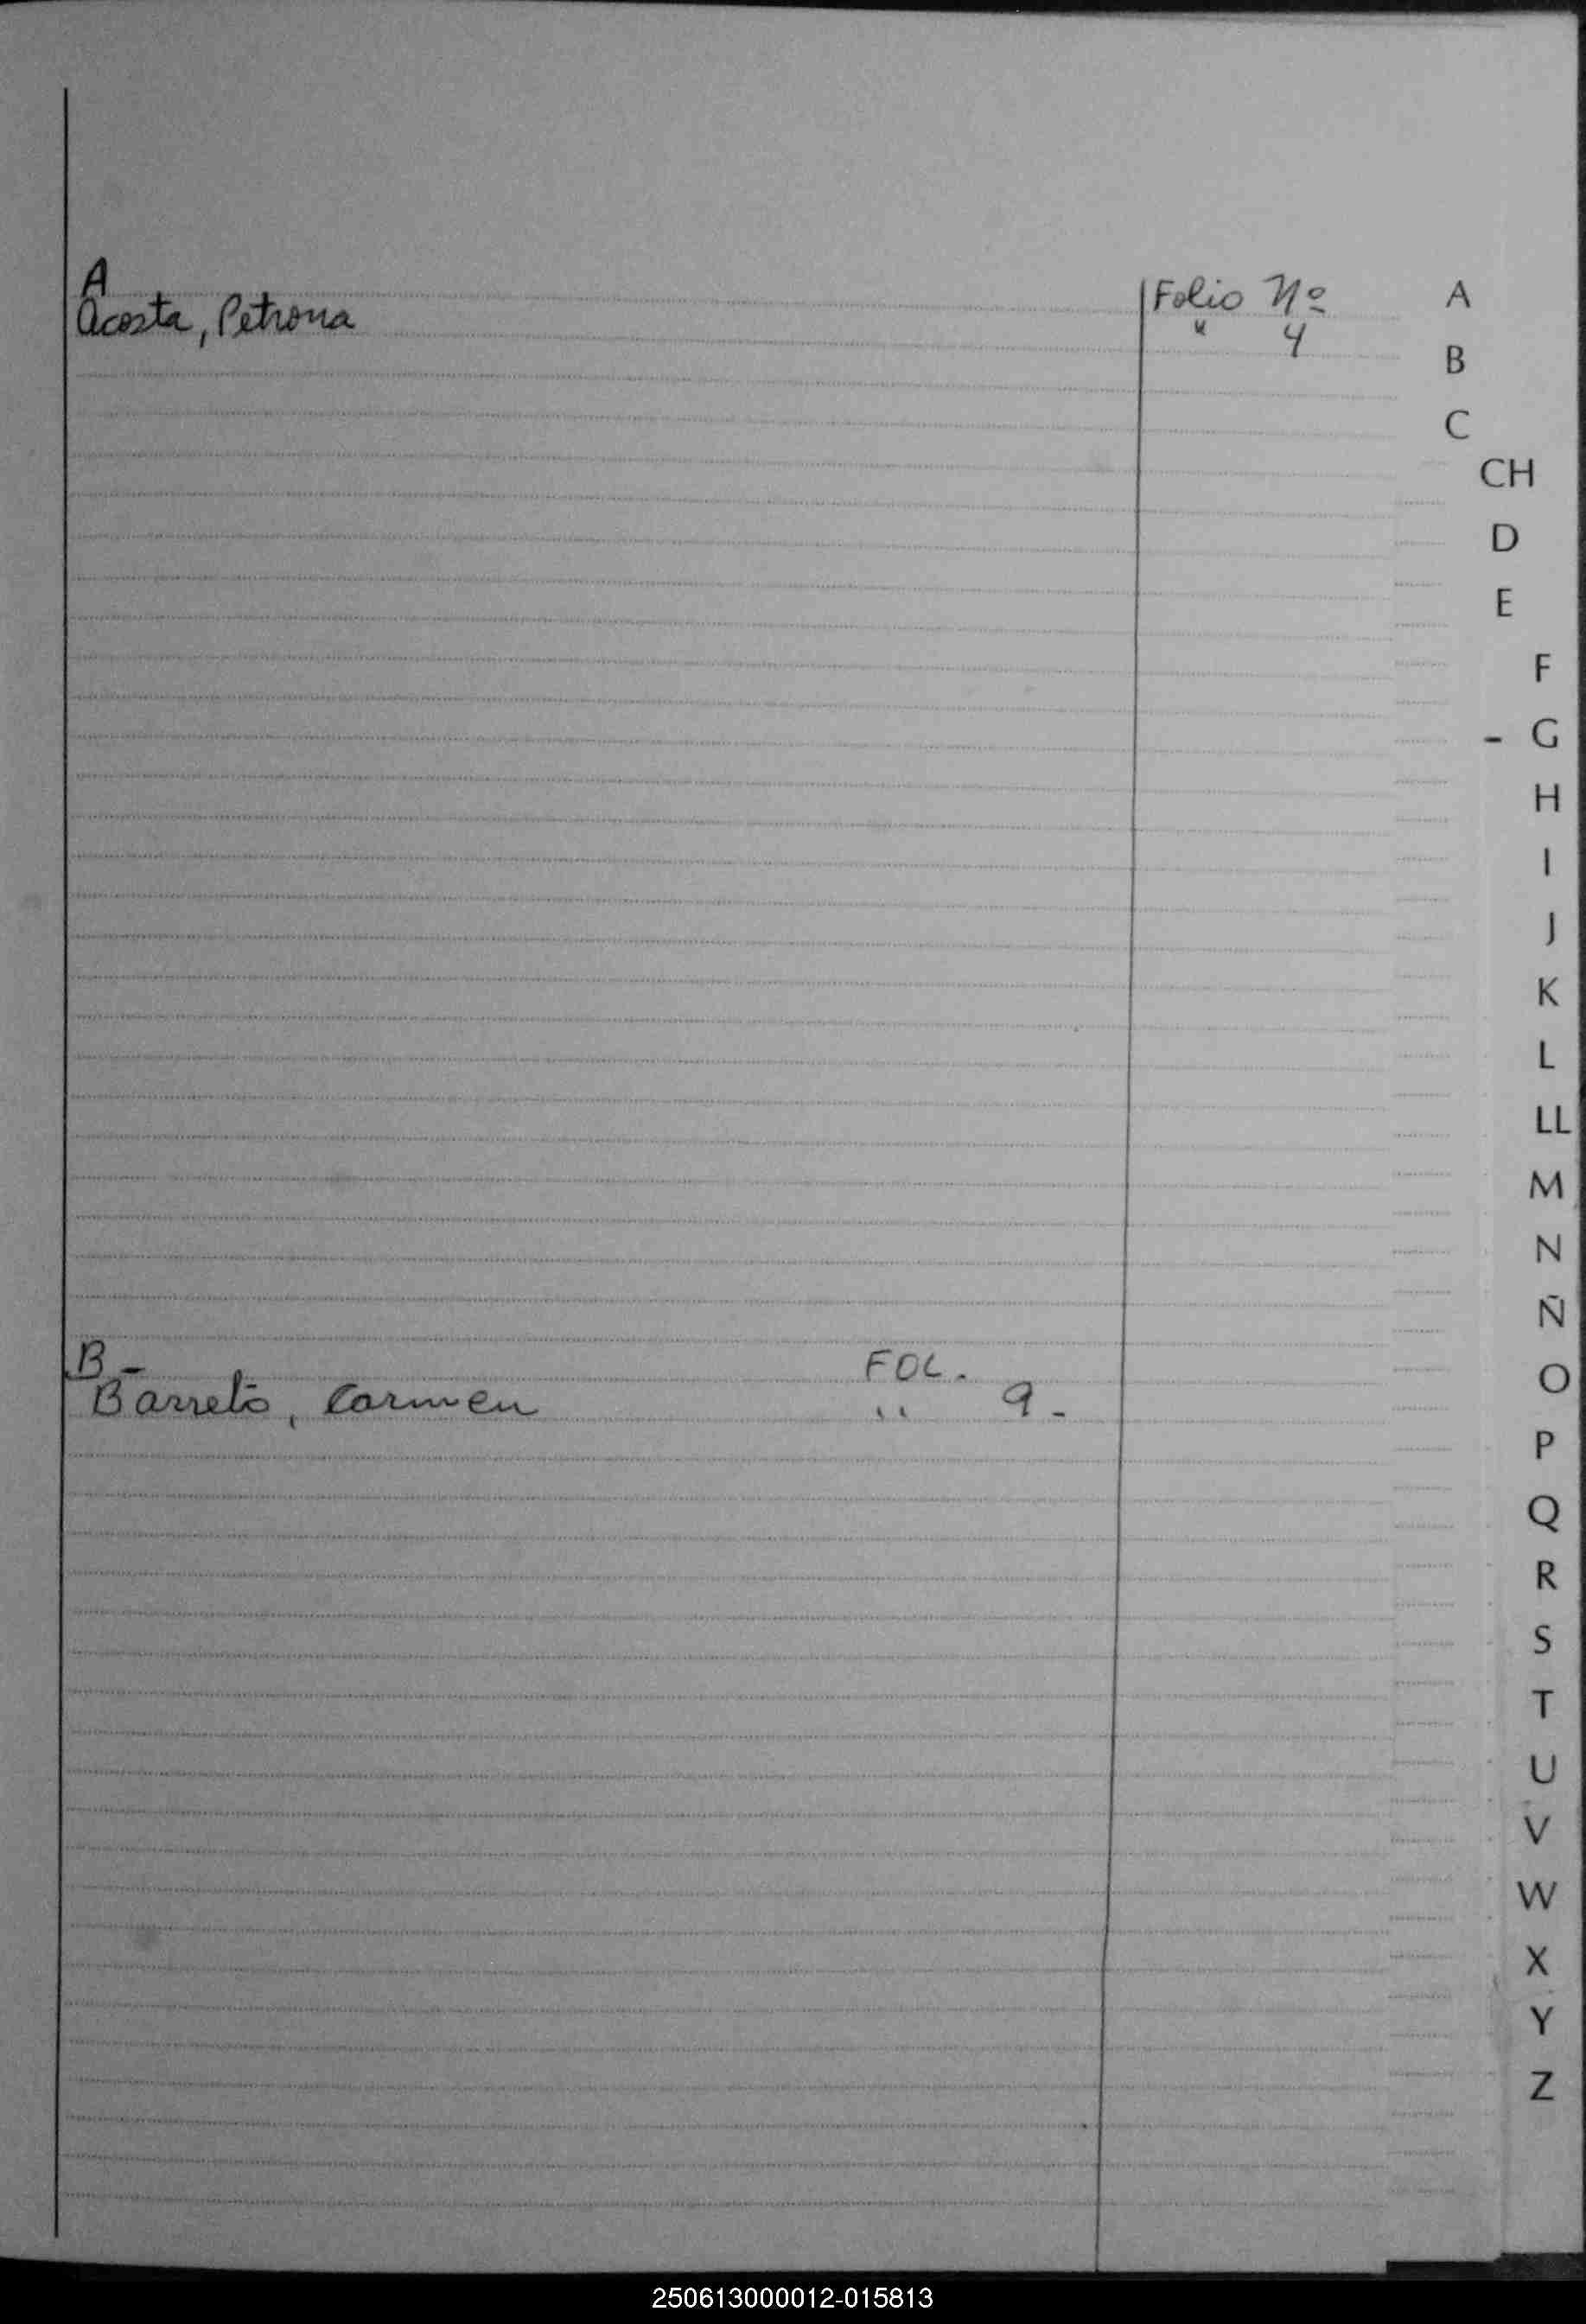 A Folio Nº
Acosta, Petrona " 4
B - FOL.
Barreto, Carmen " 9 -
A
B
C
CH
D
E
F
- G
H
I
J
K
L
LL
M
N
Ñ
O
P
Q
R
S
T
U
V
W
X
Y
Z
250613000012-015813